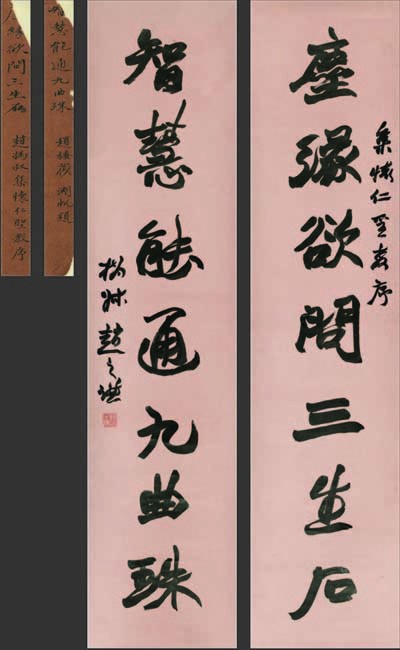 塵緣欲問三生石
集懷仁聖教序
智慧能通九曲珠
撝叔趙之謙
智慧能通九曲珠
湖帆題
緣欲問三生石
趙撝叔集懷仁聖教序